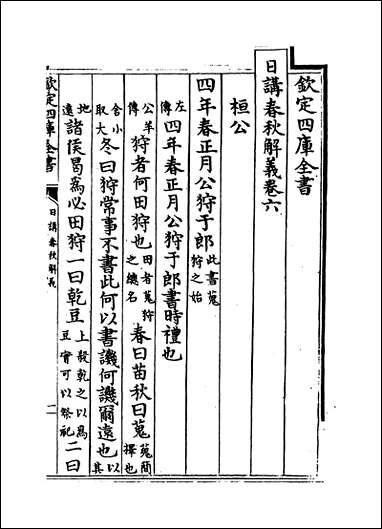 欽定四庫全書
日講春秋解義卷六
桓公
四年春正月公狩于郎此書蒐狩之始
左傳四年春正月公狩于郎書時禮也
公羊傳狩者何田狩也田者蒐狩之總名春曰苗秋曰蒐蒐簡擇也
舍小取大冬曰狩常事不書此何以書譏何譏爾遠也以其
地遠諸侯曷為必田狩一曰乾豆上殺乾之以為豆實可以祭祀二曰
欽定四庫全書
日講春秋解義